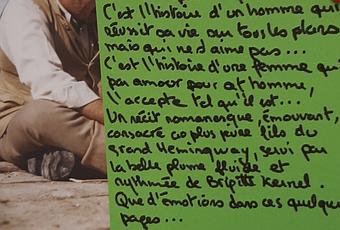 C'est l'histoire d'un homme qui
réussit sa vie sur tous les plans
mais qui ne d'aime pas...
C'est l'histoire d'une femme qui
par amour pour cet homme,
l'accepte tel qu'il est...
Un récit romanesque, émouvant,
consacré au plus jeune fils du
grand Hemingway, servi par
la belle plume, fluide et
rythmée de Brigitte Kernel.
Que d'émotions dans ces quelques
pages...